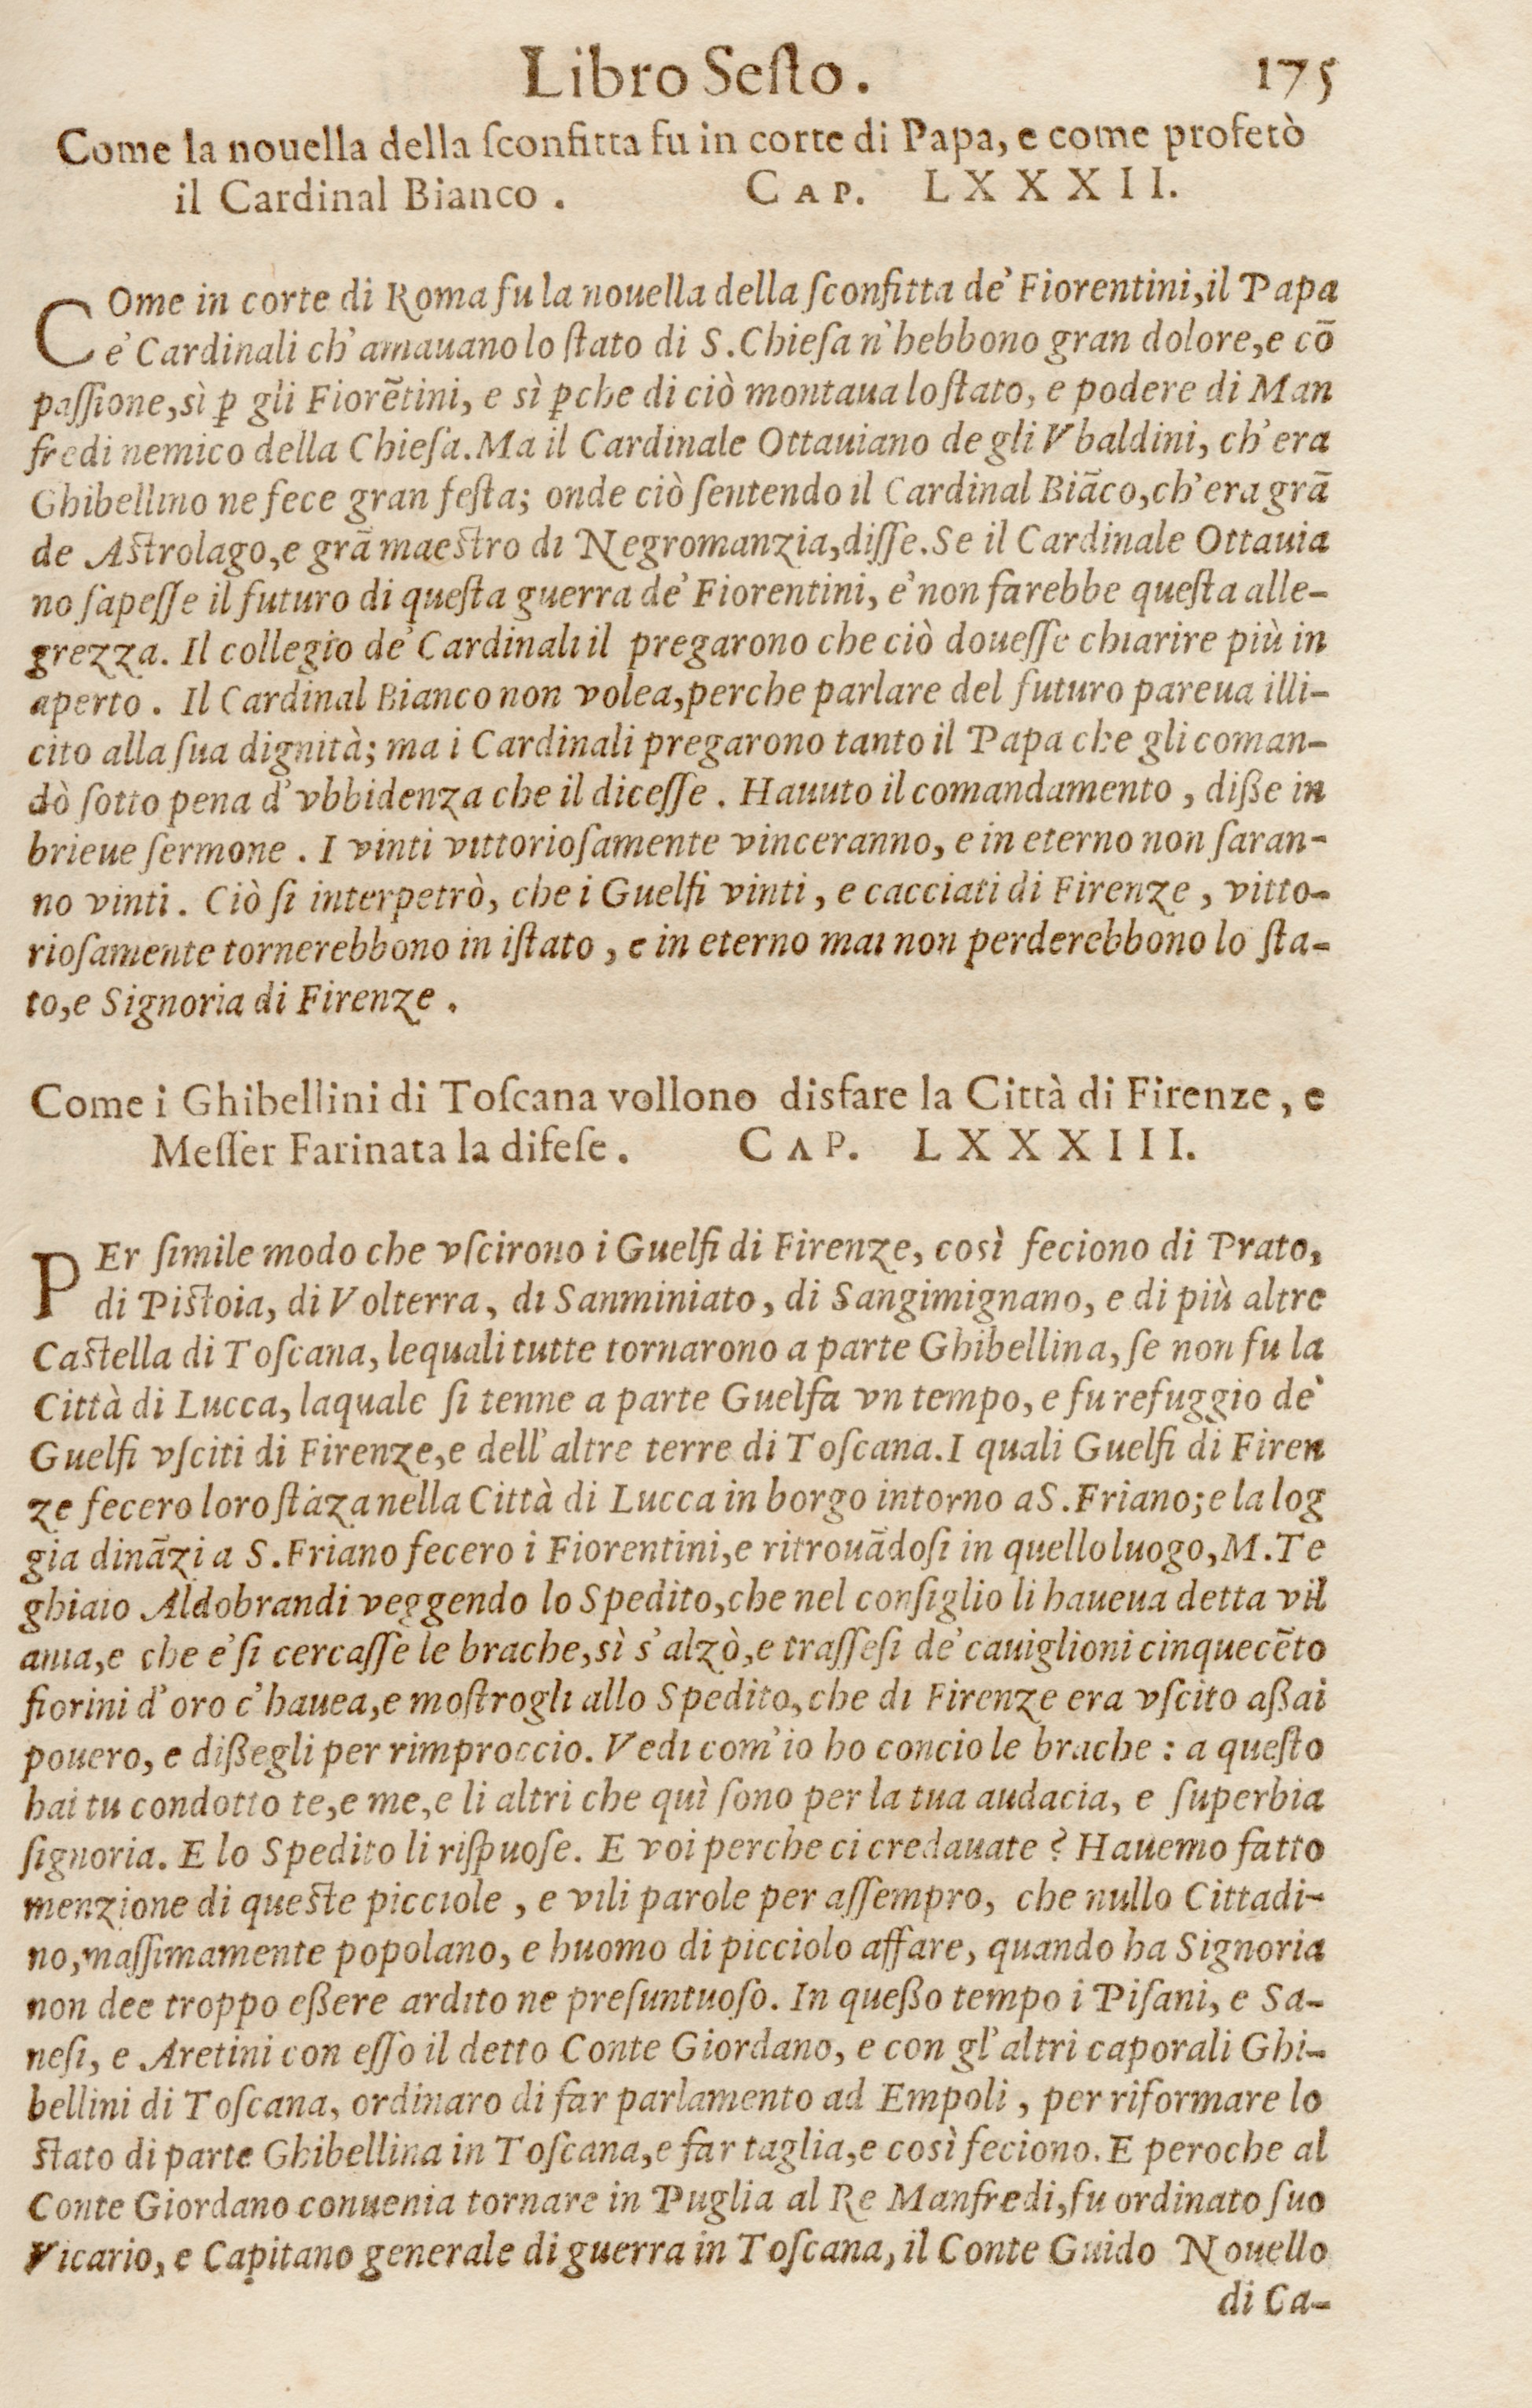 Libro Seſto. 175
Come la nouella della ſconfitta fu in corte di Papa, e come profetò
il Cardinal Bianco. CAP. LXXXII.
COme in corte di Roma fu la nouella della ſconfitta de' Fiorentini, il Papa
e' Cardinali ch'amauano lo ſtato di S. Chieſa n'hebbono gran dolore, e cō
paſſione, sì ꝑ gli Fiorētini, e sì ꝑche di ciò montaua lo ſtato, e podere di Man
fredi nemico della Chieſa. Ma il Cardinale Ottauiano de gli Vbaldini, ch'era
Ghibellino ne fece gran feſta; onde ciò ſentendo il Cardinal Biāco, ch'era grā
de Aſtrolago, e grā maeſtro di Negromanzia, diſſe. Se il Cardinale Ottauia
no ſapeſſe il futuro di queſta guerra de' Fiorentini, e' non farebbe queſta alle-
grezza. Il collegio de' Cardinali il pregarono che ciò doueſſe chiarire più in
aperto. Il Cardinal Bianco non volea, perche parlare del futuro pareua illi-
cito alla ſua dignità; ma i Cardinali pregarono tanto il Papa che gli coman-
dò ſotto pena d'vbbidenza che il diceſſe. Hauuto il comandamento, diße in
brieue ſermone. I vinti vittorioſamente vinceranno, e in eterno non ſaran-
no vinti. Ciò ſi interpetrò, che i Guelfi vinti, e cacciati di Firenze, vitto-
rioſamente tornerebbono in iſtato, e in eterno mai non perderebbono lo ſta-
to, e Signoria di Firenze.
Come i Ghibellini di Toſcana vollono disfare la Città di Firenze, e
Meſſer Farinata la difeſe. CAP. LXXXIII.
PEr ſimile modo che vſcirono i Guelfi di Firenze, così feciono di Prato,
di Piſtoia, di Volterra, di Sanminiato, di Sangimignano, e di più altre
Caſtella di Toſcana, lequali tutte tornarono a parte Ghibellina, ſe non fu la
Città di Lucca, laquale ſi tenne a parte Guelfa vn tempo, e fu refuggio de'
Guelfi vſciti di Firenze, e dell'altre terre di Toſcana. I quali Guelfi di Firen
ze fecero loro ſtāza nella Città di Lucca in borgo intorno a S. Friano; e la log
gia dināzi a S. Friano fecero i Fiorentini, e ritrouādoſi in quello luogo, M. Te
ghiaio Aldobrandi veggendo lo Spedito, che nel conſiglio li haueua detta vil
ania, e che e' ſi cercaſſe le brache, sì s'alzò, e traſſeſi de' cauiglioni cinquecēto
fiorini d'oro c'hauea, e moſtrogli allo Spedito, che di Firenze era vſcito aßai
pouero, e dißegli per rimproccio. Vedi com'io ho concio le brache: a queſto
hai tu condotto te, e me, e li altri che quì ſono per la tua audacia, e ſuperbia
ſignoria. E lo Spedito li riſpuoſe. E voi perche ci credauate? Hauemo fatto
menzione di queſte picciole, e vili parole per aſſempro, che nullo Cittadi-
no, maſſimamente popolano, e huomo di picciolo affare, quando ha Signoria
non dee troppo eßere ardito ne preſuntuoſo. In queßo tempo i Piſani, e Sa-
neſi, e Aretini con eſſo il detto Conte Giordano, e con gl'altri caporali Ghi-
bellini di Toſcana, ordinaro di far parlamento ad Empoli, per riformare lo
ſtato di parte Ghibellina in Toſcana, e far taglia, e così feciono. E peroche al
Conte Giordano conuenia tornare in Puglia al Re Manfredi, fu ordinato ſuo
Vicario, e Capitano generale di guerra in Toſcana, il Conte Guido Nouello
di Ca-